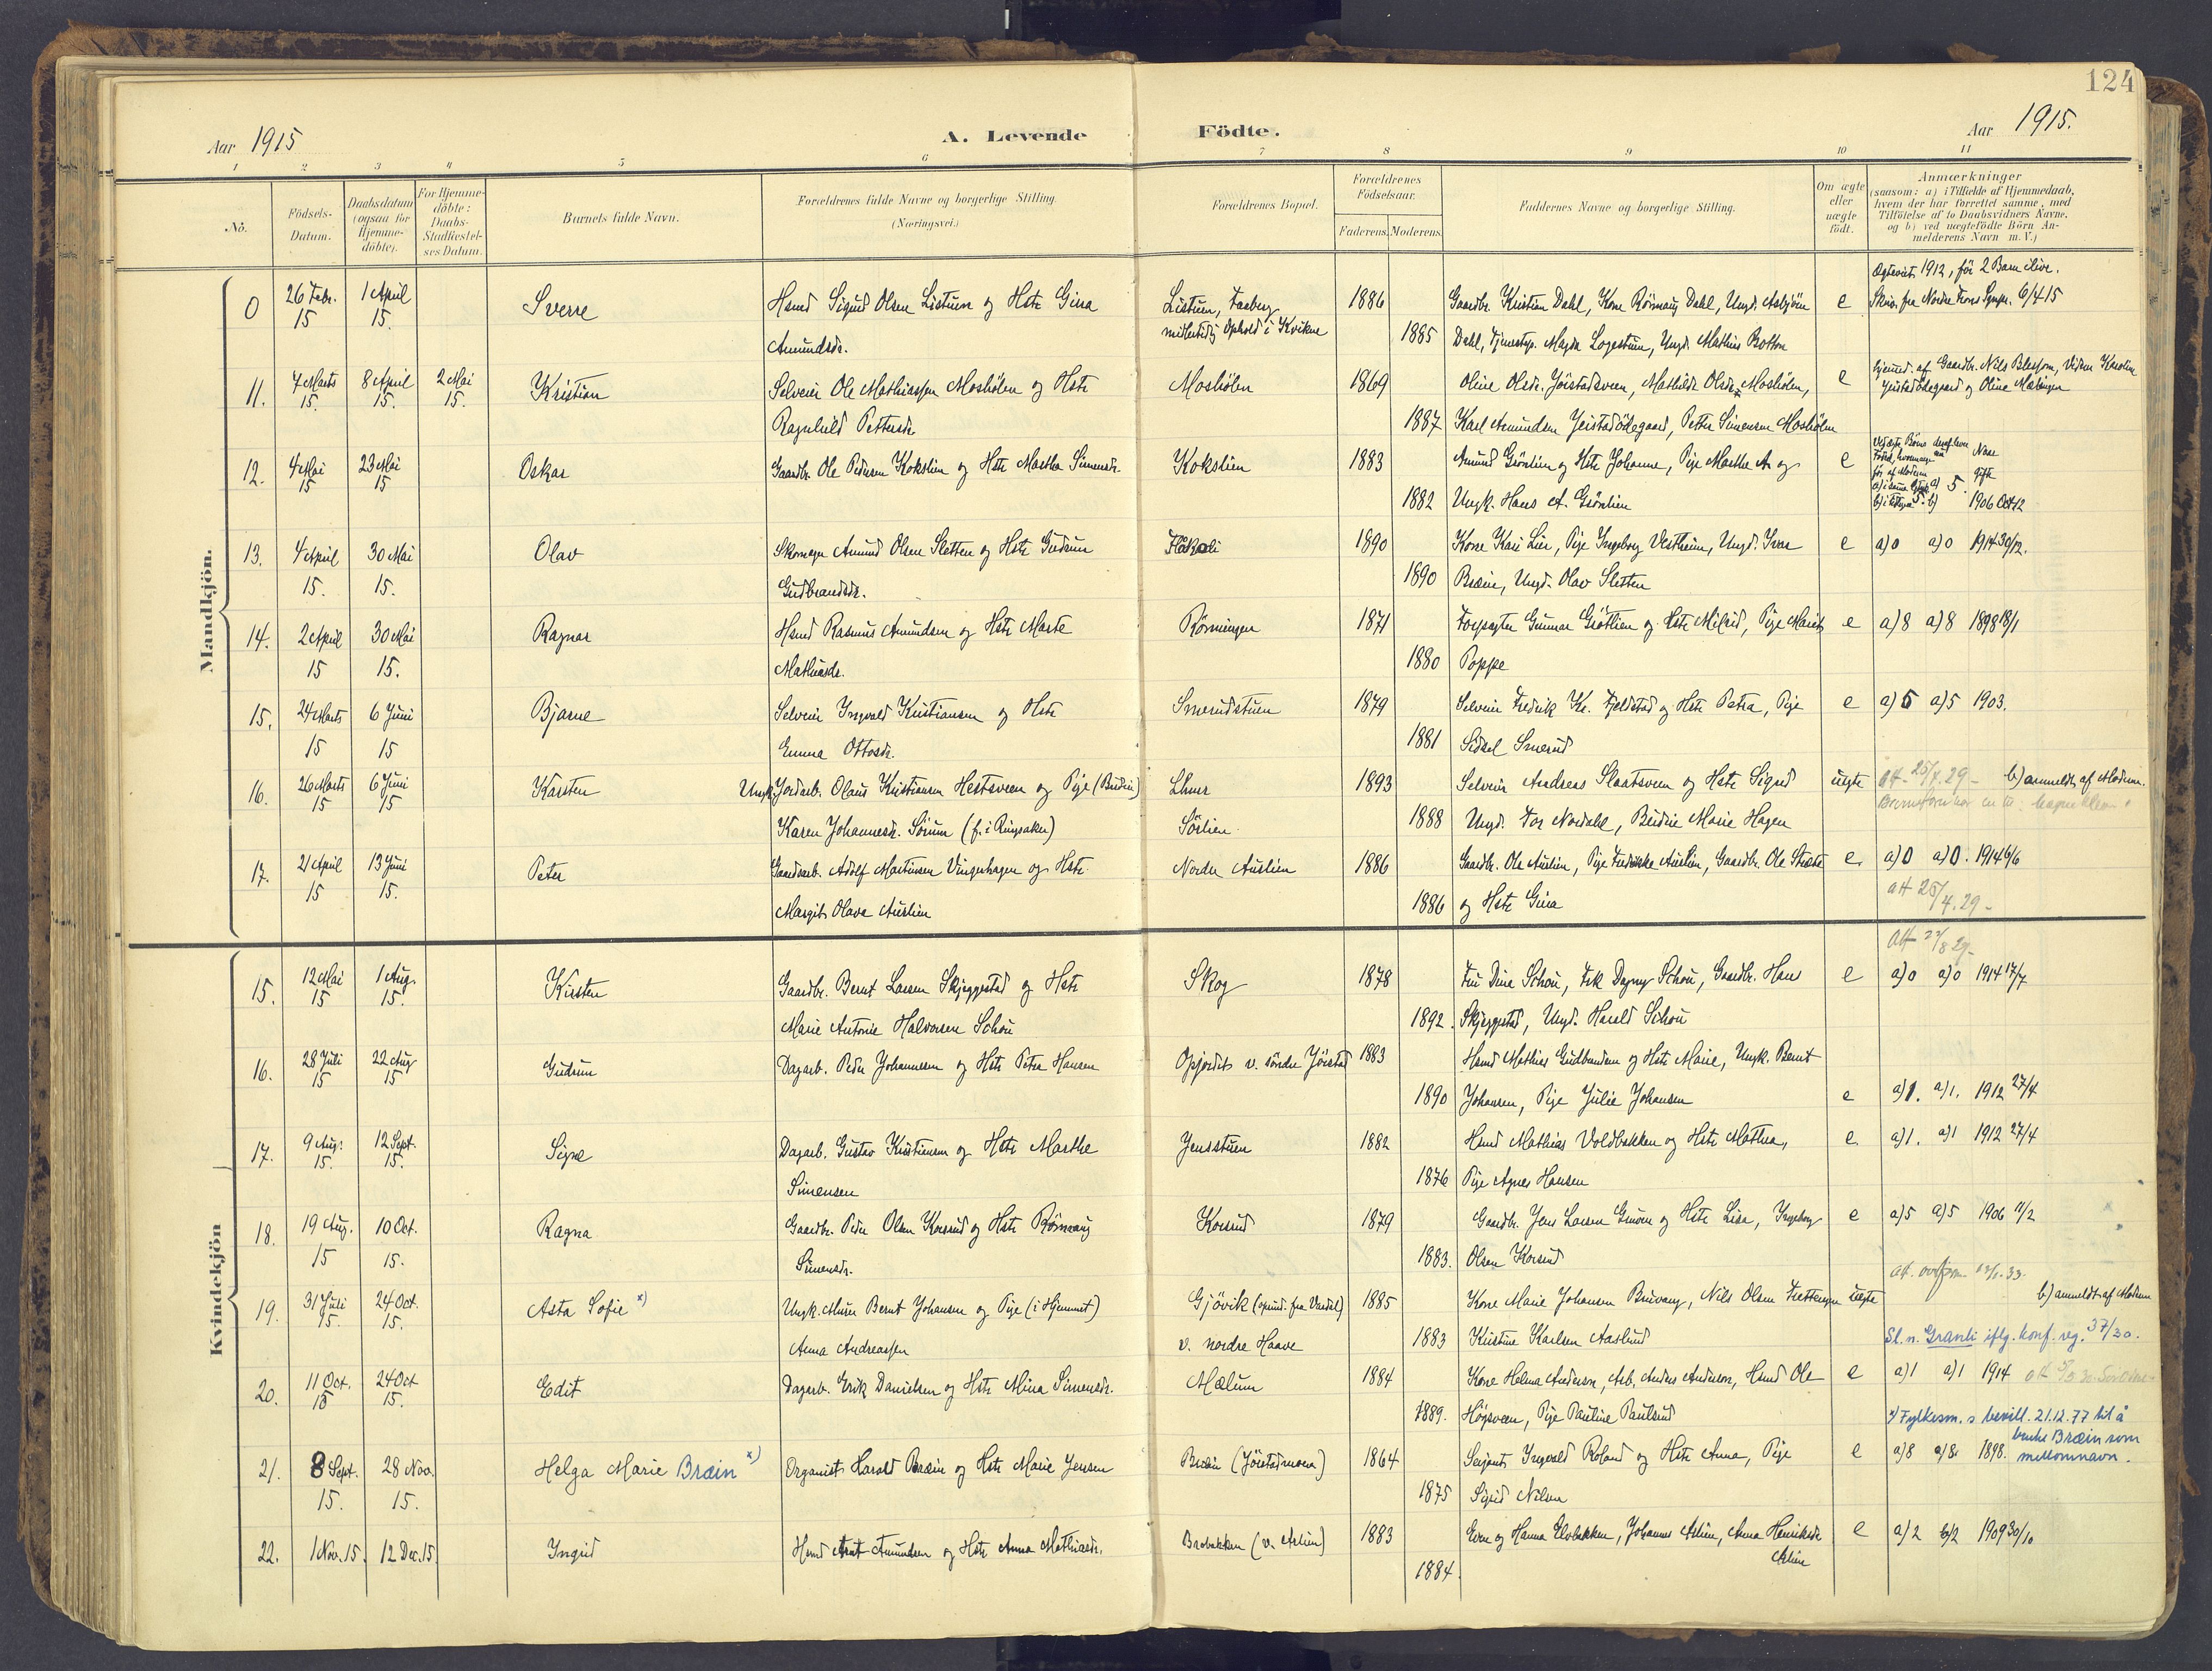 124
Aar 1915
A. Levende
Födte.
Aar 1915.
1 2 3 4 5 6 7 8 9 10 11
No.
Födsels-
Datum.
Daabsdatum
(ogsaa for
Hjemme-
döbte).
For Hjemme-
döbte:
Daabs-
Stadfæstel-
ses Datum.
Barnets fulde Navn.
Forældrenes fulde Navne og borgerlige Stilling
(Næringsvei.)
Forældrenes Bopæl.
Forældrenes
Födselsaar.
Faderens. Moderens.
Faddernes Navne og borgerlige Stilling.
Om ægte
eller
uægte
født.
Anmærkninger
(saasom: a) i Tilfælde af Hjemmedaab,
hvem der har forrettet samme, med
Tilföielse af to Daabsvidners Navne,
og b) ved uægtefödte Börn An-
melderens Navn m. V.)
Mandkjön.
0 26 Febr. 15 1 April 15. Sverre Hsmd Sigurd Olsen Listuen og Hstr Gina Listuen, Faaberg 1886 Gaardbr. Kristian Dahl, Kone Rönnaug Dahl, Ungk. Asbjörn e Ægteviet 1912, för 2 Barn ilive.
Skriv. fra Nordre Frons Sgpr. 6/4 15
Amundsdr. midlertidig Ophold i Kvikne 1885 Dahl, Tjenestep. Magda Logestuen, Ungk. Mathias Botten
11. 7 Marts 15. 8 April 15. 2 Mai 15. Kristian Selveier Ole Mathiassen Moshölen og Hstr Moshölen 1869 Oline Olsdr. Jöistadsveen, Mathilde Olsdr. Moshölen, e hjemmed. af Gaardbr. Nils Blessom, Vidner Karoline
Jeistadödegaard og Oline Mæhingen
Ragnhild Pettersdr 1887 Karl Amundsen Jeistadödegaard, Petter Simensen Moshölen
12. 4 Mai 15 23 Mai 15 Oskar Gaardbr. Ole Pedersen Kokslien og Hstr Marthe Simensdr. Kokslien 1883 Amund Grönlien og Hstr Johanne, Pige Marthe A. og e
1882 Ungk. Hans A. Grönlien 5. b) 1906 Oct 12
13. 4 April 15. 30 Mai 15. Olav Skomager Amund Olsen Sletten og Hstr Gudrun Flåkoli 1890 Kone Kari Lier, Pige Ingeborg Vestheim, Ungk. Ivar e a) 0 a) 0 1914 30/12.
Gudbrandsdr. 1890 Bræin, Ungk. Olav Sletten
14. 2 April 15 30 Mai 15. Ragnar Hsmd Rasmus Amundsen og Hstr Marte Rönningen 1871 Forpagter Gunnar Gröttlien og Hstr Milrid, Pige Marit e a) 8 a) 8 1898 18/1
Mathiasdr. 1880 Poppe
15. 24 Marts 15 6 Juni 15 Bjarne Selveier Ingvald Kristiansen og Hstr Smerudstuen 1879 Selveier Fredrik Kr. Fjeldstad og Hstr Petra, Pige e a) 5 a) 5 1903.
Emma Ottosdr. 1881 Sidsel Smerud
16. 26 Marts 15 6 Juni 15 Karsten Ungk. Jordarb. Olaus Kristiansen Hestsveen og Pige (Budeie) Lhmr 1893 Selveier Andreas Slaatsveen og Hstr Sigrid uægte att 25/4. 29 - b) anmeldt af Moderen.
Karen Johannesdr. Sörum (f. i Ringsaker) Sörlien 1888 Ungk. Tor Nordahl, Budeie Marie Hagen
17. 21 April 15 13 Juni 15. Peter Gaardsarb. Adolf Martinsen Vingerhagen og Hstr Nordre Aurlien 1886 Gaardbr. Ole Aurlien, Pige Fredrikke Aurlien, Gaardbr. Ole Stræte e. a) 0 a) 0. 1914 6/6
Margit Olava Aurlien 1886 og Hstr Gina att 25/4. 29 -
Kvindekjön
att 22/8 29 -
15. 12 Mai 15 1 Aug. 15. Kirsten Gaardbr. Bernt Larsen Skjeggestad og Hstr Skog 1878 Fru Dina Schou, Frk Dagny Schou, Gaardbr. Hans e a) 0 a) 0 1914 17/7
Marie Antonie Halvorsen Schou 1892. Skjeggestad, Ungk. Harald Schou
16. 28 Juli 15 22 Aug 15 Gudrun Dagarb. Peder Johannesen og Hstr Petra Hansen Opjordet v. söndre Jöistad 1883 Hsmd Mathias Gudbrandsen og Hstr Marie, Ungk. Bernt
1890 Johansen, Pige Julie Johansen e a) 1. a) 1. 1912 27/4
17. 9 Aug. 15. 12 Sept. 15. Signe Dagarb. Gustav Kristiansen og Hstr Marthe Jensstuen 1882 Hsmd Mathias Voldbakken og Hstr Mathea, e. a) 1. a) 1 1912 27/4
Simensen 1876 Pige Agnes Hansen
18. 19 Aug. 15 10 Oct. 15. Ragna Gaardbr. Peder Olsen Korsrud og Hstr Rönnaug Korsrud 1879 Gaardbr. Jens Larsen Gruen og Hstr Lisa, Ingeborg e a) 5 a) 5 1906 11/2
Simensdr. 1883. Olsen Korsrud
19. 31 Juli 15. 24 Oct. 15. Asta Sofie x) Ungk. Murer Bernt Johansen og Pige (i Hjemmet) Gjövik (oprind. fra Vardal) 1885 Kone Marie Johansen Bruvang, Nils Olsen Frettengen uægte b) anmeldt af Moderen
Anna Andreassen v. nordre Haave 1883 Kristine Karlsen Aaslund Sl. n. Granli iflg. konf. reg. 37/30.
20. 11 Oct. 15 24 Oct 15. Edit Dagarb. Erik Danielsen og Hstr Mina Simensdr. Mælum 1884 Kone Helma Andersen, Arb. Anders Andersen, Hsmd Ole e a) 1 a) 1 1914
1889. Högsveen, Pige Pauline Paulsrud x) Fylkesm. s bevill. 21.12.77 til å
bruke Bræin som
mellomnavn.
21. 8 Sept. 15. 28 Nov. 15. Helga Marie Bræin x) Organist Harald Bræin og Hstr Marie Jensen Bræin (Jöistadmoen) 1864 Serjant Ingvald Roland og Hstr Anna, Pige e a) 8 a) 8 1898.
1875 Sigrid Nilsen
22. 1 Nov. 15. 12 Dec. 15. Ingrid Hsmd Arnt Amundsen og Hstr Anna Mathiasdr. Brobakken (v. Aslien) 1883 Even og Hanna Elvbakken, Johannes Aslien, Anna Henriksdr. e a) 2 b) 2 1909 30/10
Aslien
1884.